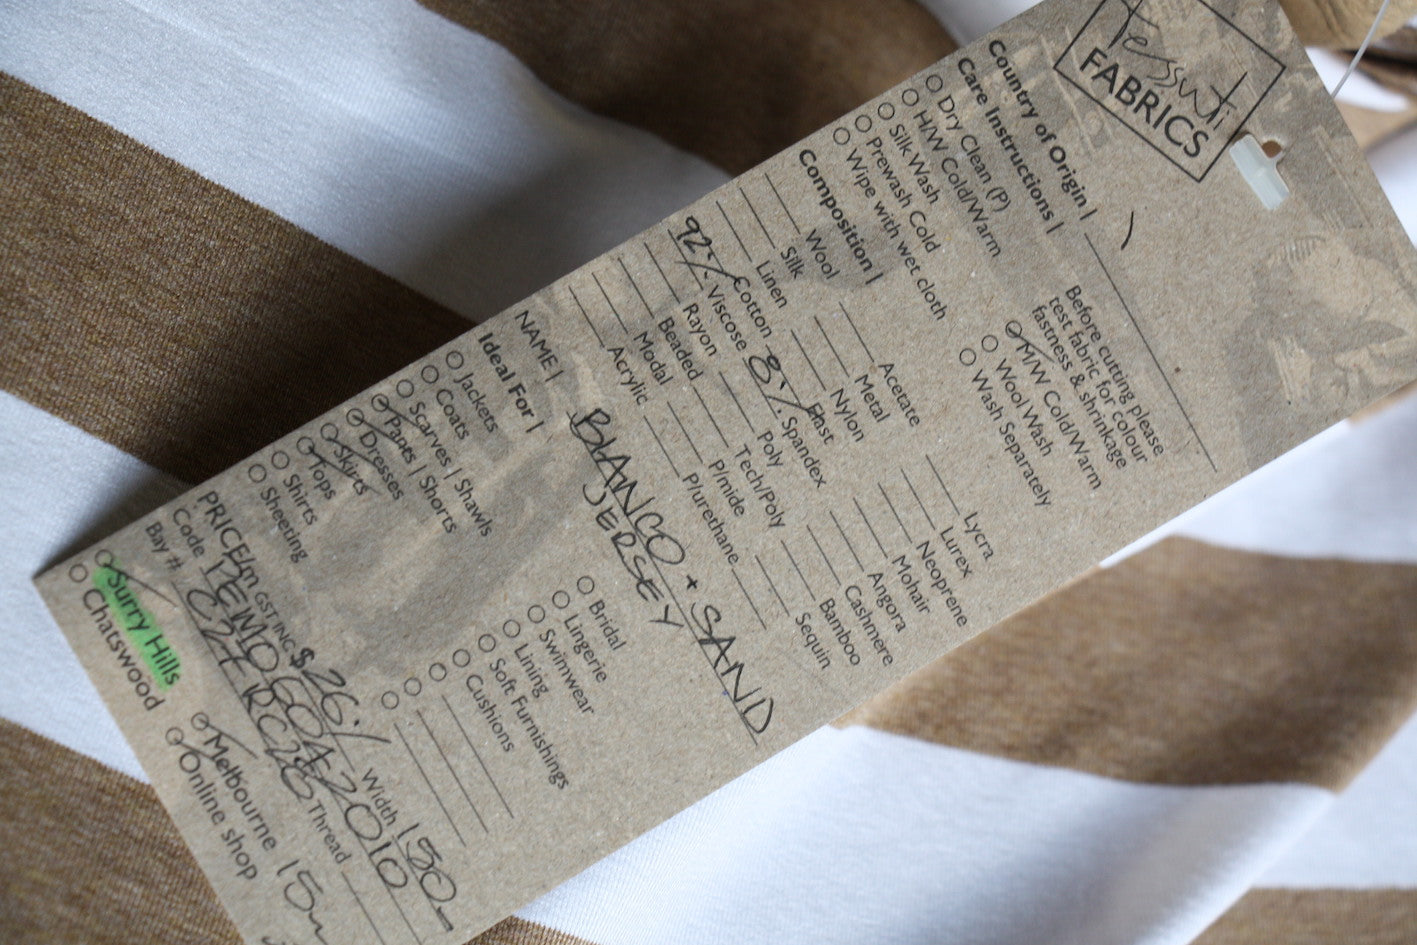 Tessuti
FABRICS
Country of Origin |
Care Instructions |
Dry Clean (P)
H/W Cold/Warm
Silk Wash
Prewash Cold
Wipe with wet cloth
Before cutting please
test fabric for colour
fastness & shrinkage
M/W Cold/Warm
Wool Wash
Wash Separately
Composition |
Wool
Silk
Linen
Cotton
92% Viscose
Rayon
Beaded
Modal
Acrylic
Acetate
Metal
Nylon
Elast
8% Spandex
Poly
Tech/Poly
P/mide
P/urethane
Lycra
Lurex
Neoprene
Mohair
Angora
Cashmere
Bamboo
Sequin
NAME | BIANCO + SAND
JERSEY
Ideal For |
Jackets
Coats
Scarves | Shawls
Pants | Shorts
Dresses
Skirts
Tops
Shirts
Sheeting
Bridal
Lingerie
Swimwear
Lining
Soft Furnishings
Cushions
PRICE/m GST INC $ 26./ Width 150
Code
Bay # Thread
Surry Hills
Chatswood
Melbourne
Online shop
15m